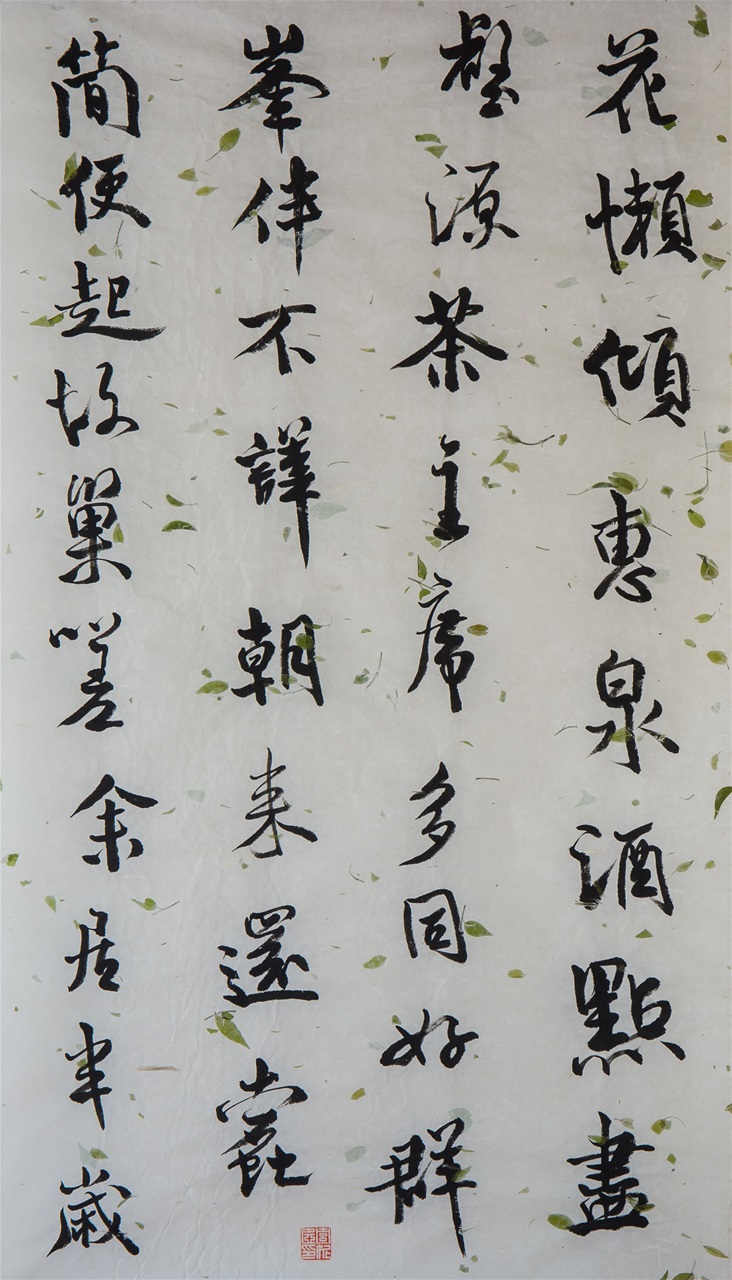 花懶傾惠泉酒點盡
壑源茶主席多同好群
峯伴不譁朝来還蠹
簡便起故巢嗟余居半歲